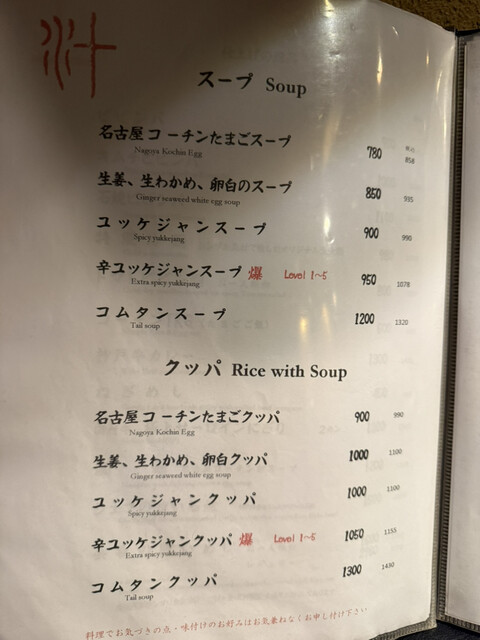 汁
スープ Soup
名古屋コーチンたまごスープ 780 858
Nagoya Kochin Egg
生姜、生わかめ、卵白のスープ 850 935
Ginger seaweed white egg soup
ユッケジャンスープ 900 990
Spicy yukkejang
辛ユッケジャンスープ 爆 Level 1~5 950 1078
Extra spicy yukkejang
コムタンスープ 1200 1320
Tail soup
クッパ Rice with Soup
名古屋コーチンたまごクッパ 900 990
Nagoya Kochin Egg
生姜、生わかめ、卵白クッパ 1000 1100
Ginger seaweed white egg soup
ユッケジャンクッパ 1000 1100
Spicy yukkejang
辛ユッケジャンクッパ 爆 Level 1~5 1050 1155
Extra spicy yukkejang
コムタンクッパ 1300 1430
Tail soup
料理でお気づきの点・味付けのお好みはお気兼ねなくお申し付け下さい